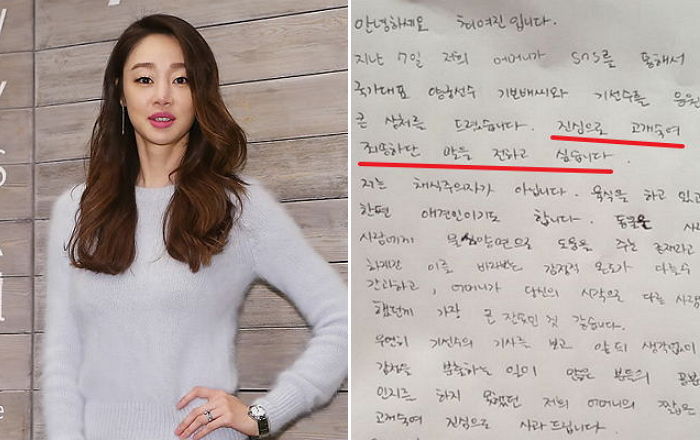 안녕하세요 최여진입니다.
지난 7일 저희 어머니가 SNS를 통해서
국가대표 양궁선수 기보배씨와 기선수를 응원
큰 상처를 드렸습니다. 진심으로 고개숙여
죄송하단 말을 전하고 싶습니다.
저는 채식주의자가 아닙니다. 육식을 하고 있고
한편 애견인이기도 합니다. 동물은
사람에게 도움을 주는 존재라고
하지만 이를 바라보는 감정적 온도가 다를수
간과하고, 어머니가 당신의 시각으로 다른 사람
했던게 가장 큰 잔못인 것 같습니다.
우연히 기선수의 기사를 보고 앞뒤 생각없이
감정을 분출하는 일이 많은 분들의 공분
인지를 하지 못했던 저희 어머니의
고개숙여 진심으로 사과 드립니다.